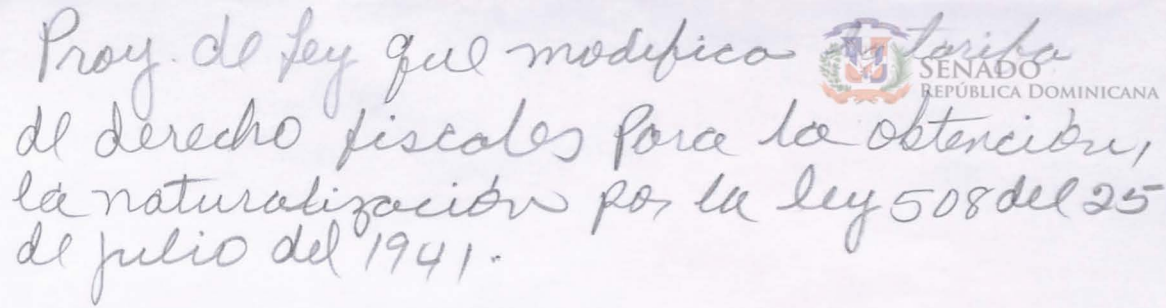 Proy. de Ley que modifica la tarifa
SENADO
REPÚBLICA DOMINICANA
de derecho fiscales para la obtención,
la naturalización por la ley 508 del 25
de julio del 1941.